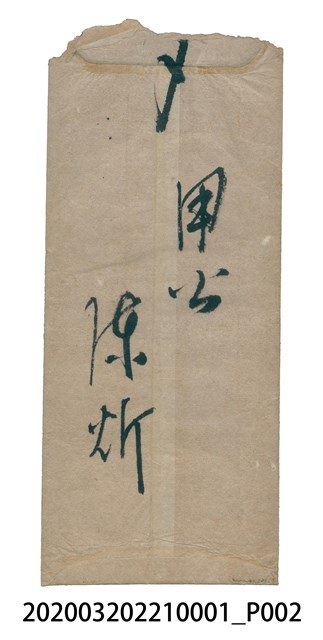 〆
用公
陳炘
202003202210001_P002